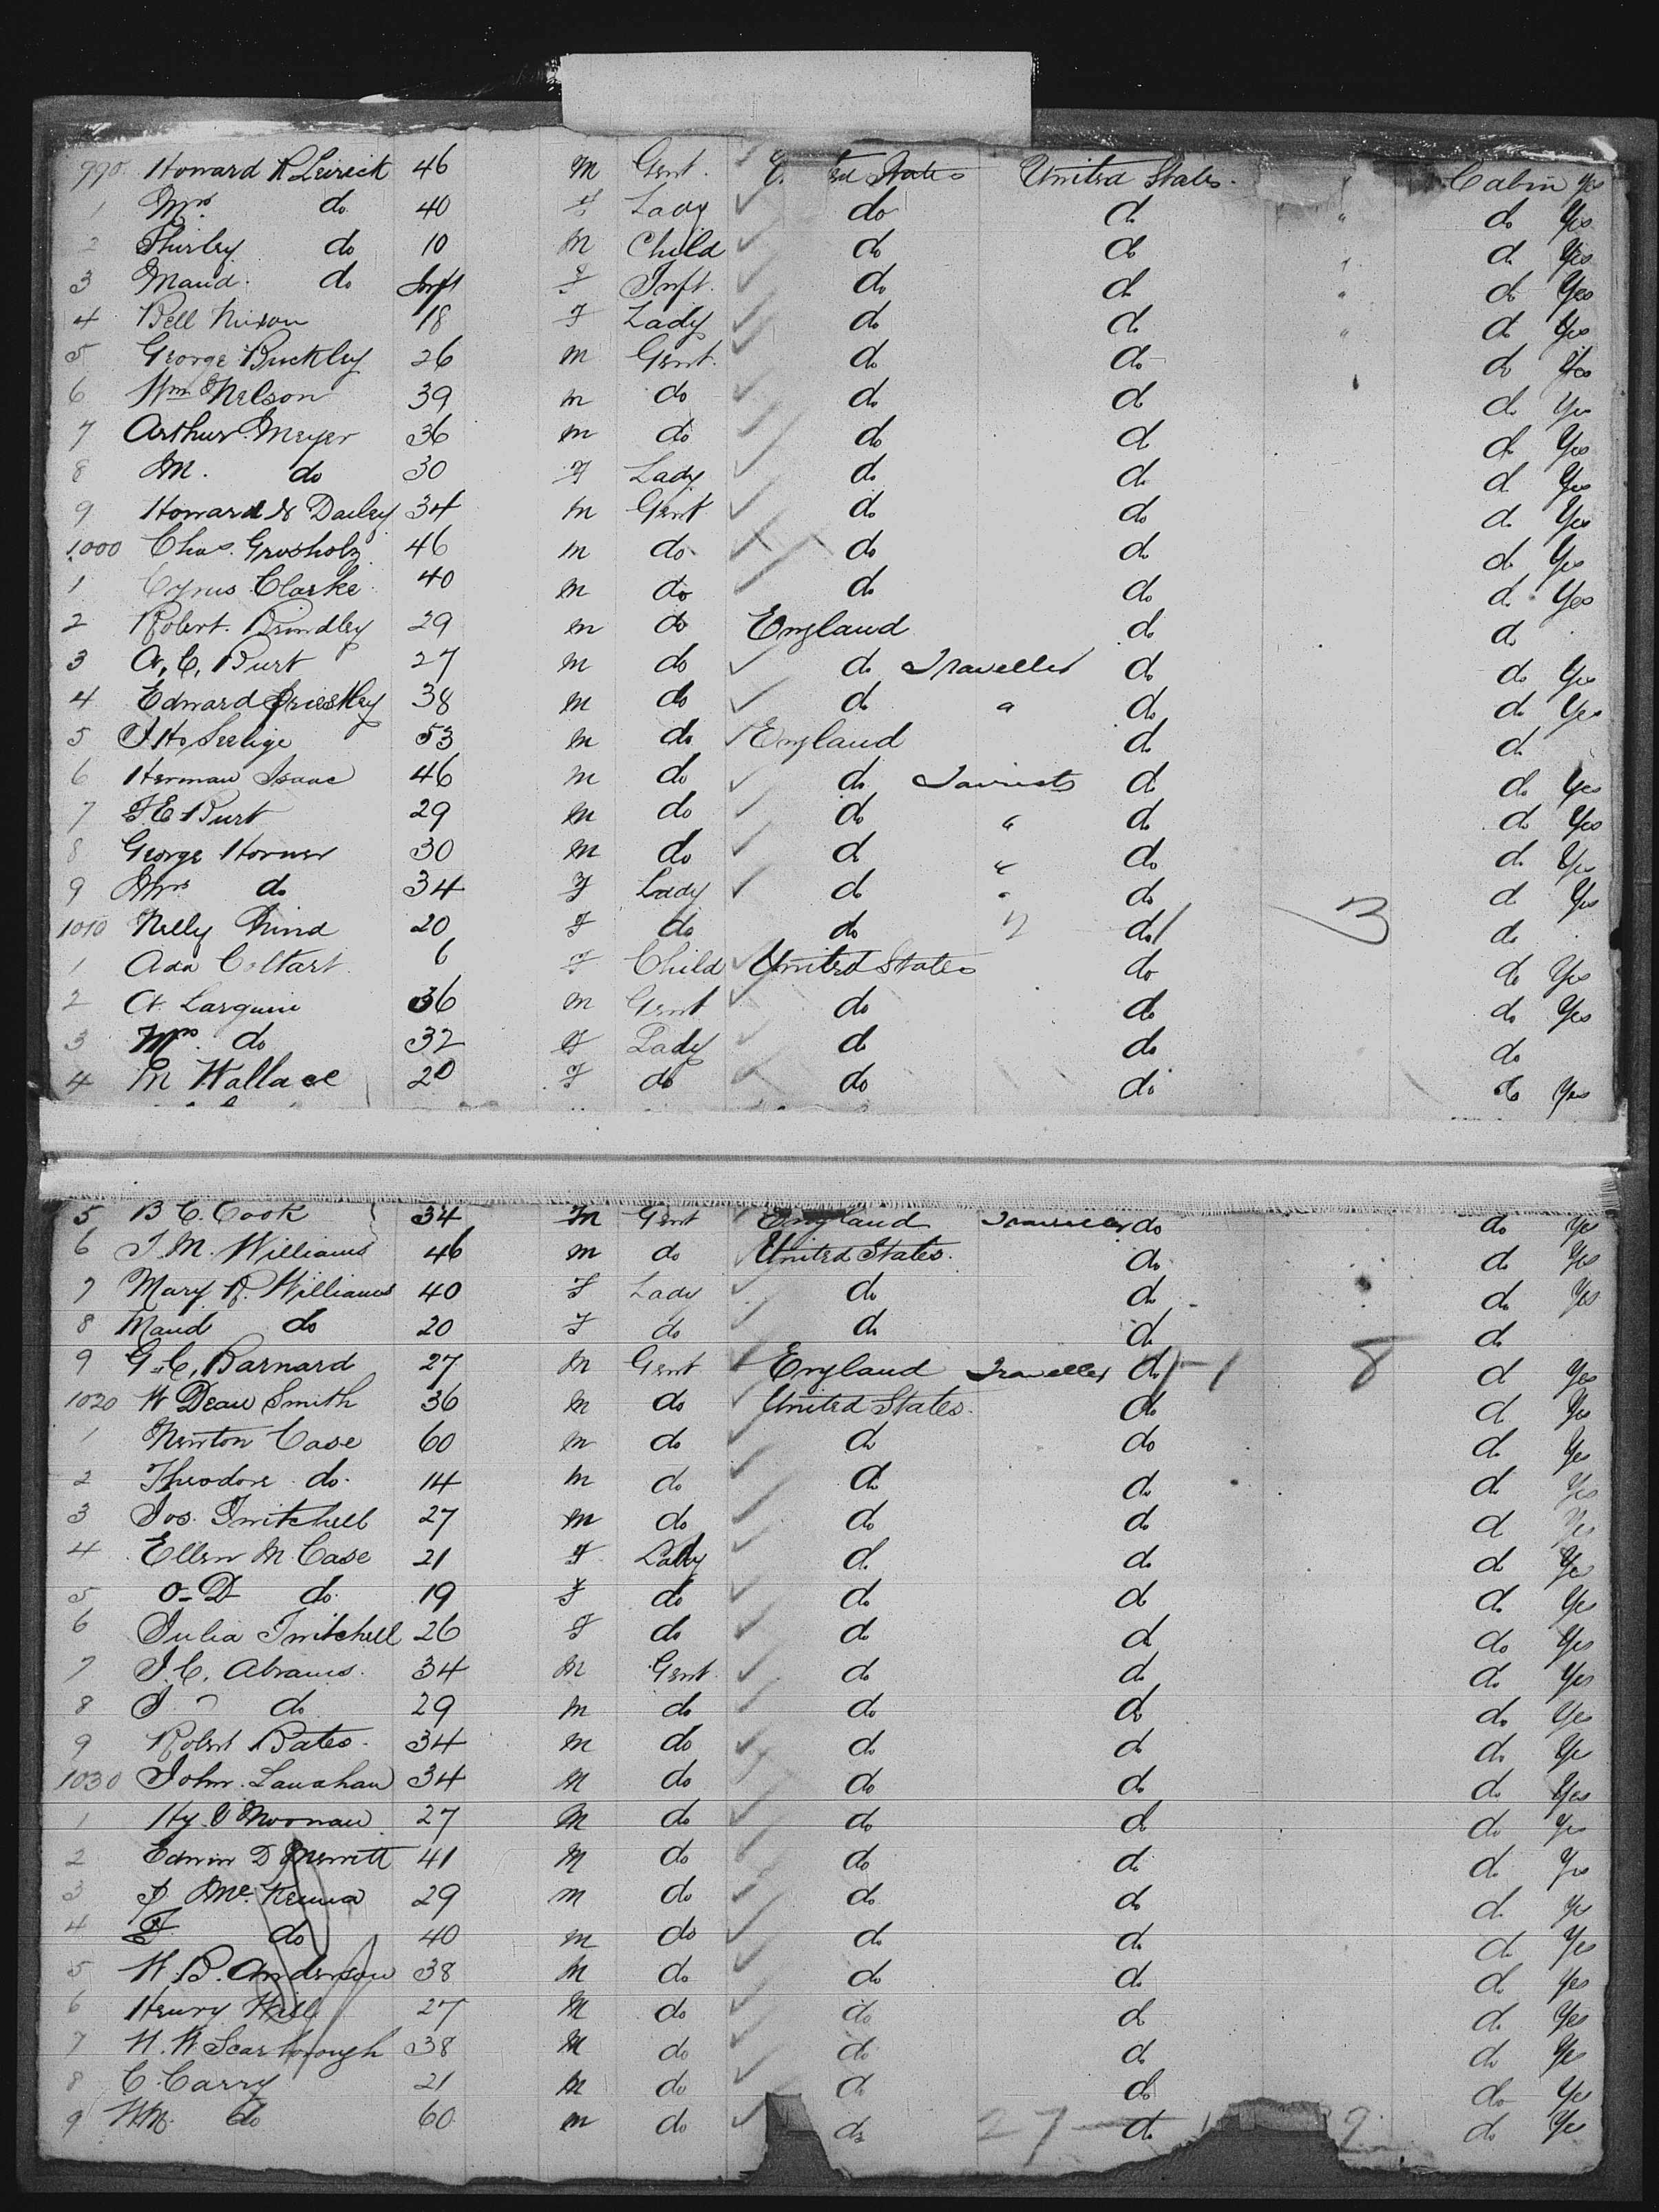 990 Howard R Leirick 46 M Gent. United States United States Cabin Yes
1 Mrs do 40 F Lady do do " do Yes
2 Shirley do 10 M Child do do do Yes
3 Maud do Inft F Inft. do do " do Yes
4 Bell Nixon 18 F Lady do do " do Yes
5 George Buckley 26 M Gent. do do do Yes
6 Wm Nelson 39 M do do do do Yes
7 Arthur Meyer 36 M do do do do Yes
8 M. do 30 F Lady do do do Yes
9 Howard Dailey 34 M Gent do do do Yes
1000 Chas. Grosholz 46 M do do do do Yes
1 Cyrus Clarke 40 M do do do do Yes
2 Robert. Brindley 29 M do England do do
3 A. C. Burt 27 M do do Traveller do do Yes
4 Edward Priestley 38 M do do " do do Yes
5 Seelige 53 M do England do do
6 Herman Isaac 46 M do do Tourists do do Yes
7 F. E Burt 29 M do do " do do Yes
8 George Horner 30 M do do " do do Yes
9 Mrs do 34 F Lady do " do do Yes
1010 Nelly Rind 20 F do do " do 3 do
1 Ada Coltart 6 F Child United States do do Yes
2 A. Larquie 36 M Gent do do do Yes
3 Mrs. do 32 F Lady do do do
4 M Wallace 20 F do do do do Yes
5 B C. Cook 34 M Gent England Traveller do do Yes
6 J. M. Williams 46 M do United States. do do Yes
7 Mary R. Williams 40 F Lady do do do Yes
8 Maud do 20 F do do do do
9 G. C. Barnard 27 M Gent England Traveller do 1 8 do Yes
1020 W Dean Smith 36 M do United States. do do Yes
1 Newton Case 60 M do do do do Yes
2 Theodore do. 14 M do do do do Yes
3 Jos. Twitchell 27 M do do do do Yes
4 Ellen M. Case 21 F Lady do do do Yes
5 O-D do. 19 F do do do do Yes
6 Julia Twitchell 26 F do do do do Yes
7 J. C. Abrams. 34 M Gent. do do do Yes
8 J " do 29 M do do do do Yes
9 Robert Bates. 34 M do do do do Yes
1030 John. Lanahan 34 M do do do do Yes
1 Hy. Noonan 27 M do do do do Yes
2 Edwin D Merritt 41 M do do do do Yes
3 J McKenna 29 M do do do do Yes
4 F. do 40 M do do do do Yes
5 W. B. Anderson 38 M do do do do Yes
6 Henry Hall 27 M do do do do Yes
7 W. W Scarborough 38 M do do do do Yes
8 C. Carry 21 M do do do do Yes
9 Wm. do 60 M do do 27 do 9 do Yes